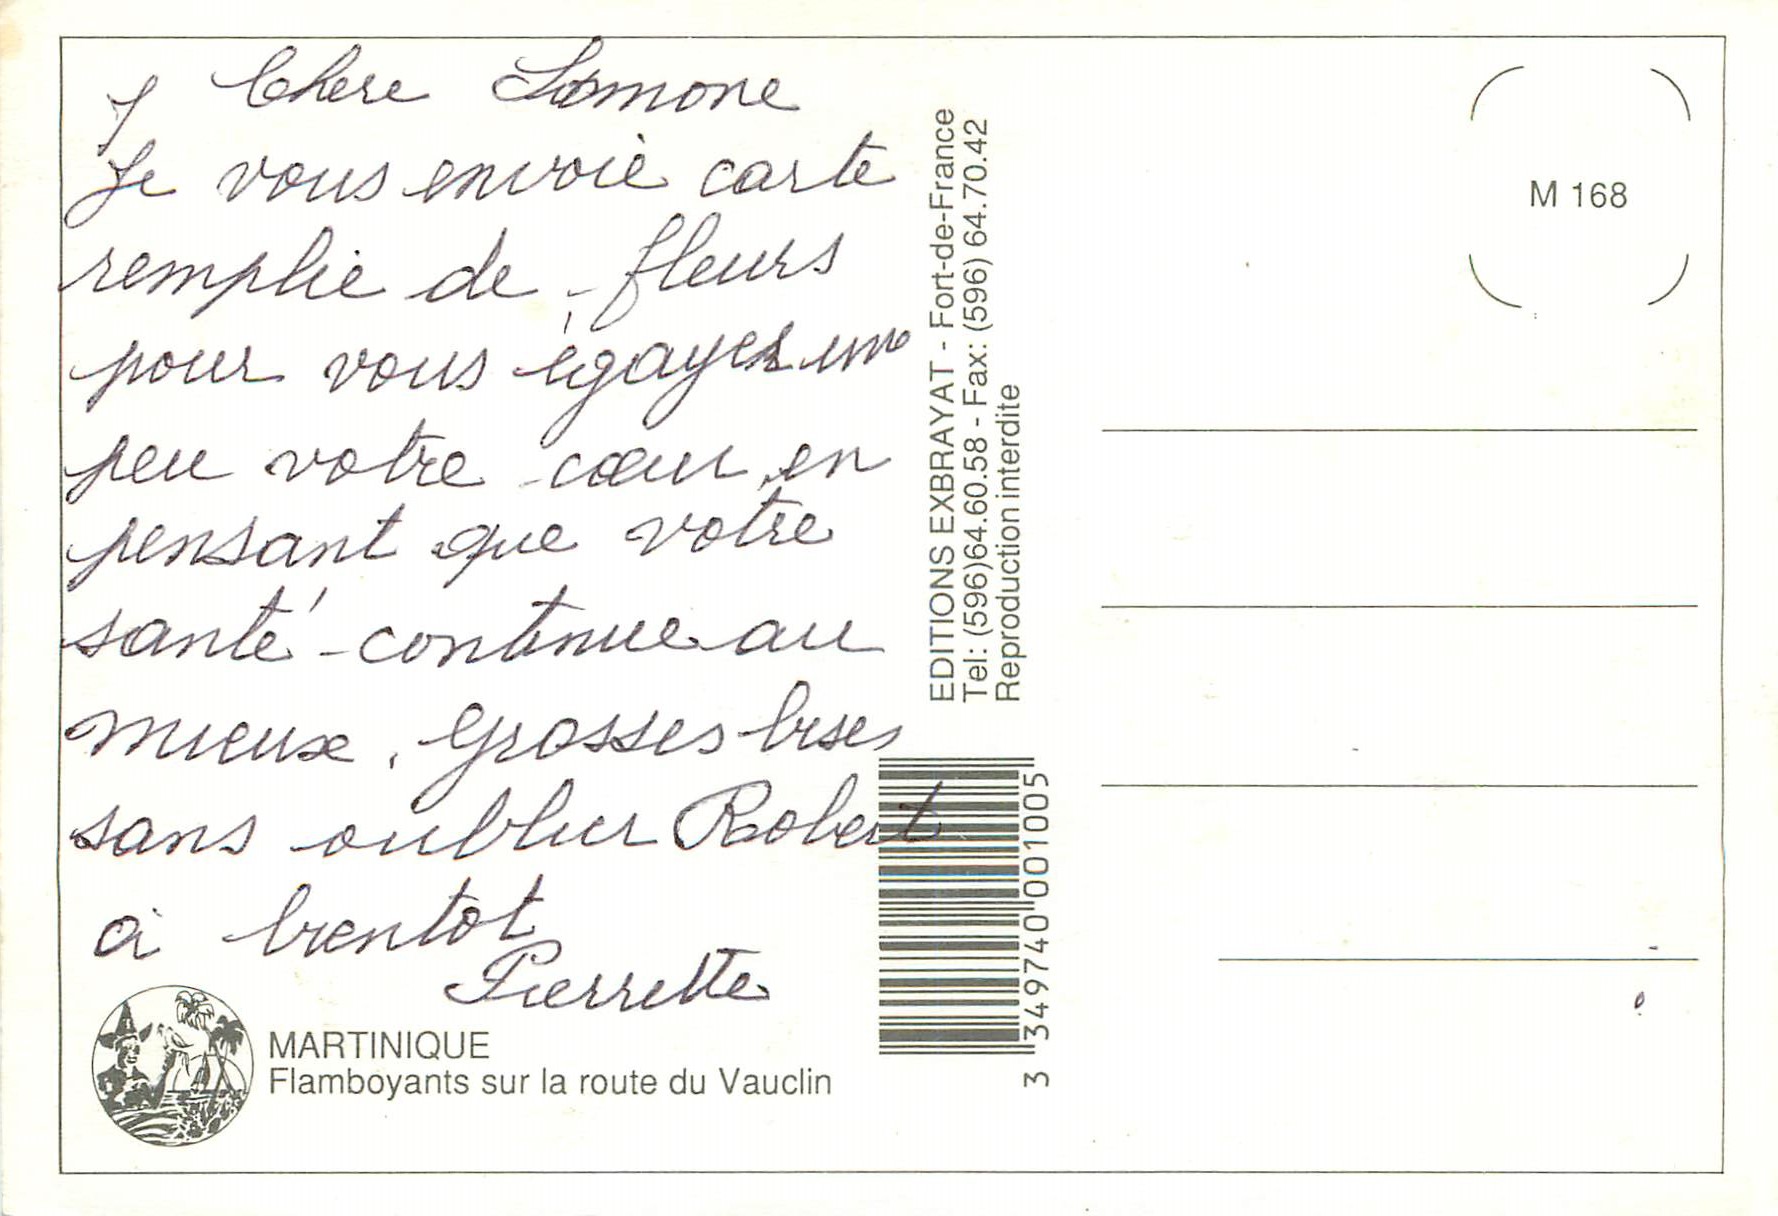 Chere Simone
Je vous envoie carte
remplie de fleurs
pour vous égayer un
peu votre cœur, en
pensant que votre
santé continue au
mieux. Grosses bises
sans oublier Robert
a bientot
Pierrette
MARTINIQUE
Flamboyants sur la route du Vauclin
EDITIONS EXBRAYAT - Fort-de-France
Tel: (596)64.60.58 - Fax: (596) 64.70.42
Reproduction interdite
3 349740 001005
M 168